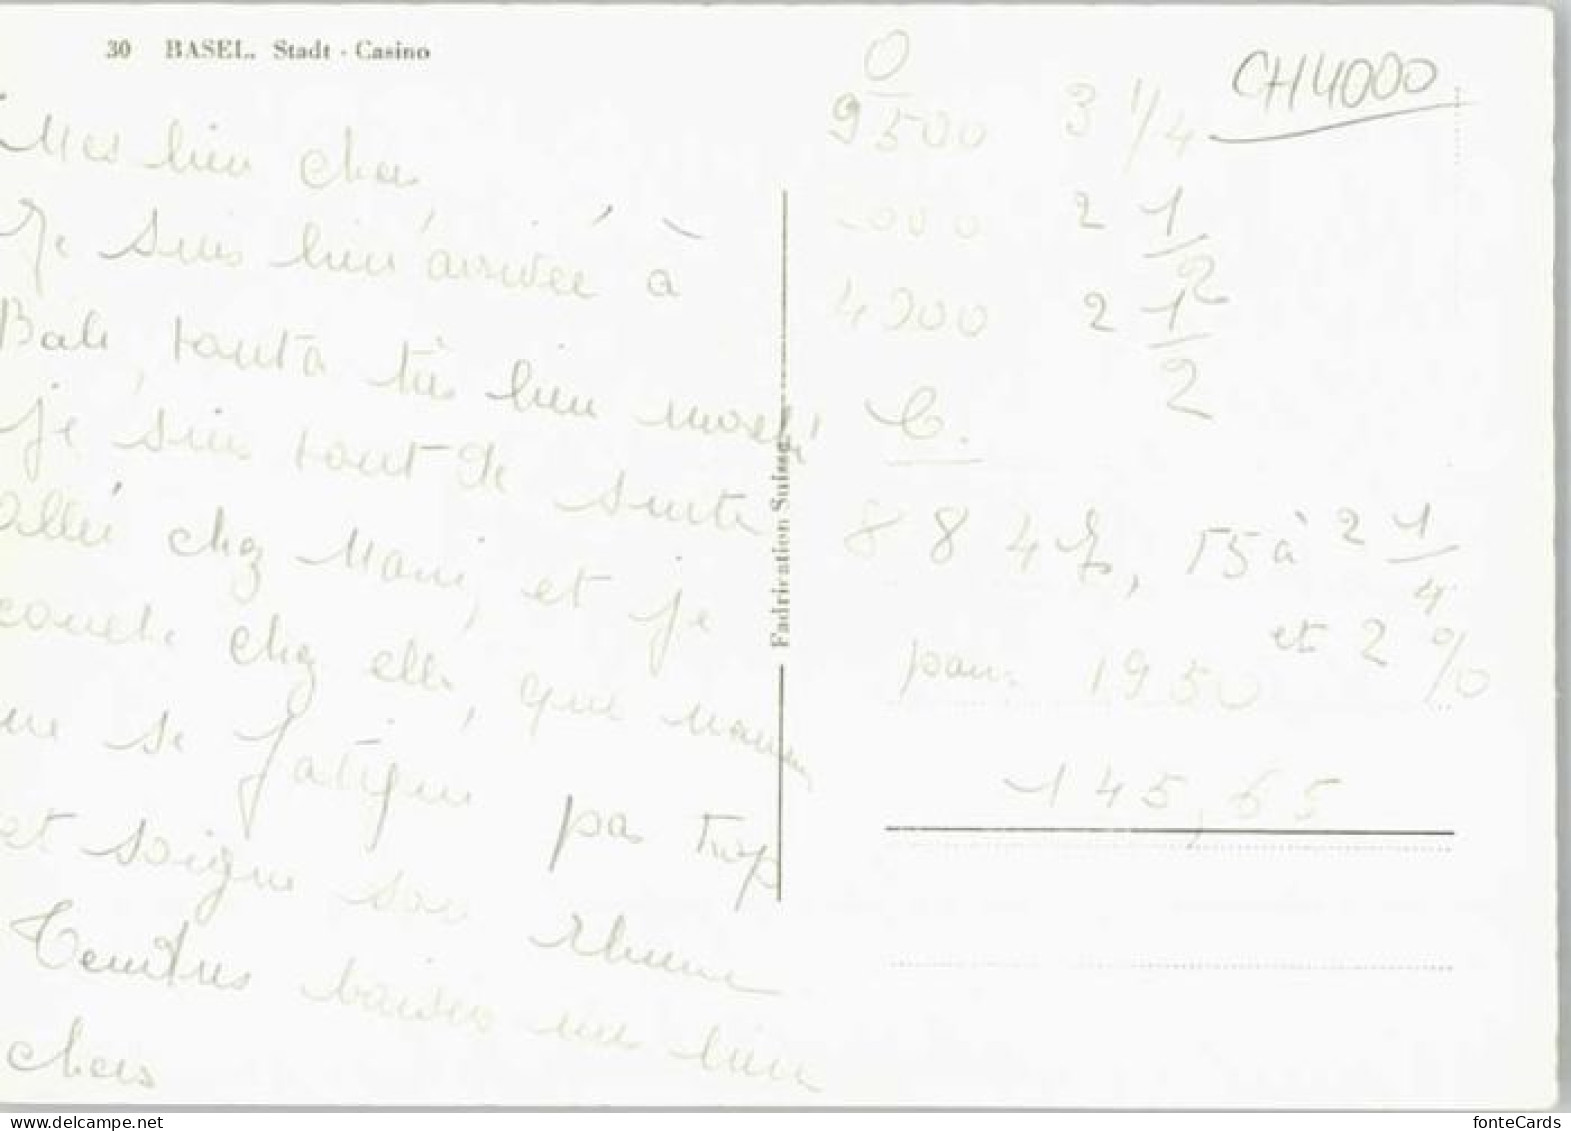 30 BASEL. Stadt - Casino
Mes bien chers
Je suis bien arrivée à
Bale, tout a très bien marché
je suis tout de suite
allée chez Mani, et je
couche chez elle, que maman
ne se fatigue pas trop
et soigne son rhume
Tendres baisers mes bien
chers
Fadrication Suisse
CH4000
0
9500 3 1/4
000 2 1/2
4000 2 1/2
C.
884 f, 55 à 2 1/4
et 2 %
pour 1950
145,65
www.delcampe.net
fonteCards